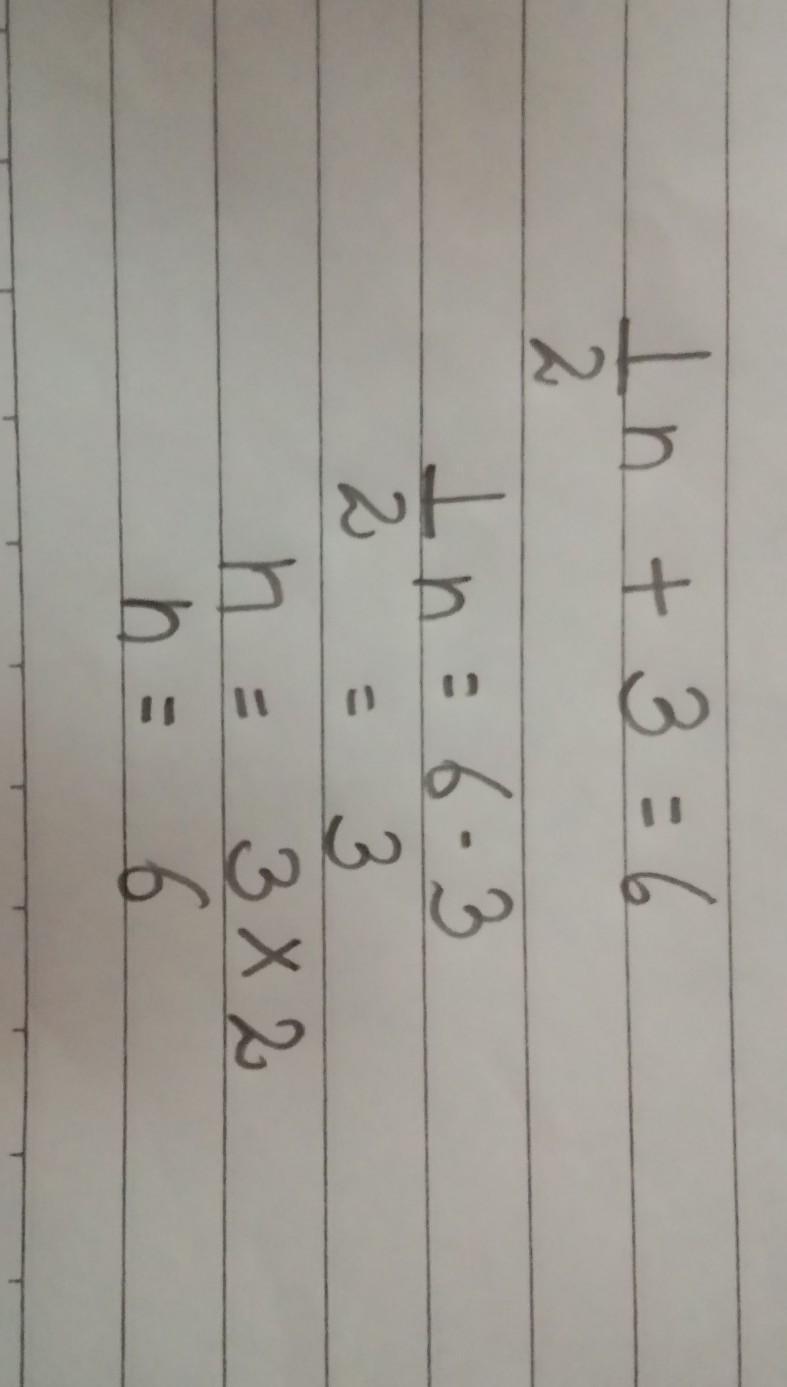 1/2 n + 3 = 6
1/2 n = 6 - 3
= 3
n = 3 × 2
n = 6